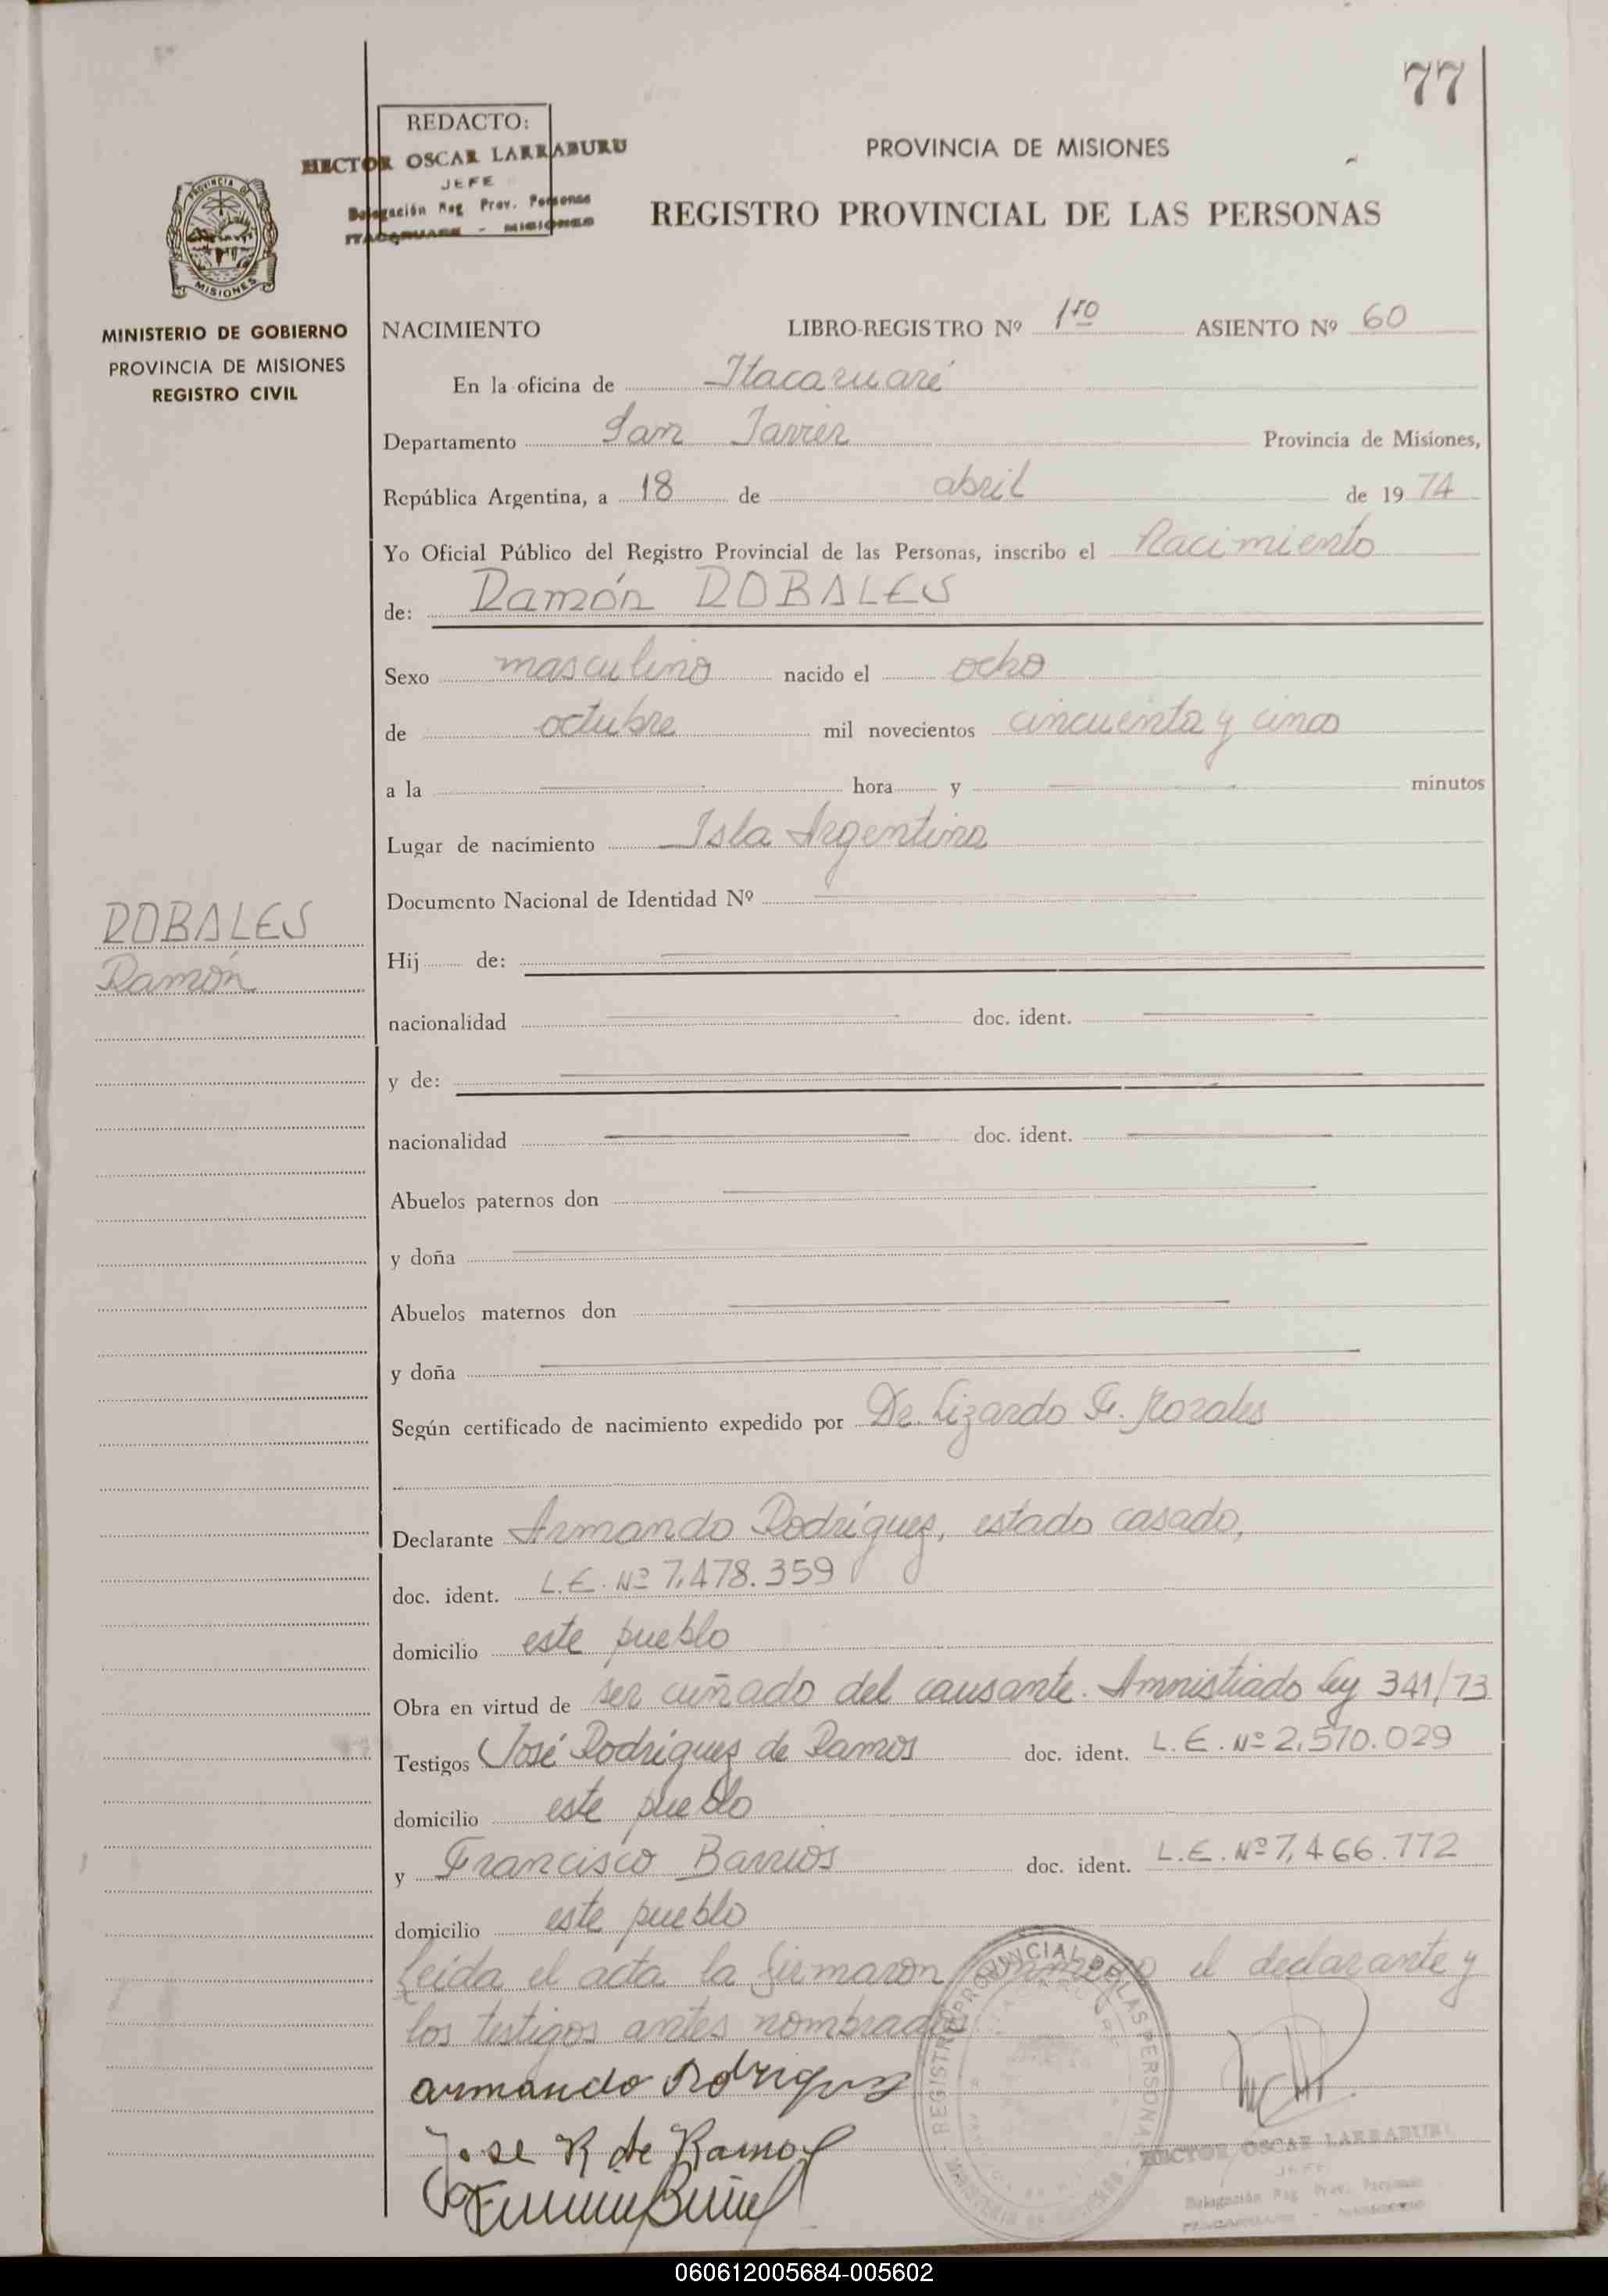 77
REDACTO:
HECTOR OSCAR LARRABURU
JEFE
Delegación Reg Prov. Personas
ITACARUARE - MISIONES
PROVINCIA DE MISIONES
REGISTRO PROVINCIAL DE LAS PERSONAS
PROVINCIA DE
MISIONES
MINISTERIO DE GOBIERNO
PROVINCIA DE MISIONES
REGISTRO CIVIL
NACIMIENTO LIBRO-REGISTRO Nº 1ro ASIENTO Nº 60
En la oficina de Itacaruaré
Departamento San Javier Provincia de Misiones,
República Argentina, a 18 de abril de 1974
Yo Oficial Público del Registro Provincial de las Personas, inscribo el Nacimiento
de: Ramón ROBALES
Sexo masculino nacido el ocho
de octubre mil novecientos cincuenta y cinco
a la hora y minutos
Lugar de nacimiento Isla Argentina
Documento Nacional de Identidad Nº
ROBALES
Ramón
Hij de:
nacionalidad doc. ident.
y de:
nacionalidad doc. ident.
Abuelos paternos don
y doña
Abuelos maternos don
y doña
Según certificado de nacimiento expedido por Dr. Lizardo F. Morales
Declarante Armando Rodríguez, estado casado,
doc. ident. L.E. Nº 7.478.359
domicilio este pueblo
Obra en virtud de ser cuñado del causante. Amnistiado ley 341/73
Testigos José Rodriguez de Ramos doc. ident. L.E. Nº 2.570.029
domicilio este pueblo
y Francisco Barrios doc. ident. L.E. Nº 7.466.772
domicilio este pueblo
Leida el acta la firmaron conmigo el declarante y
los testigos antes nombrados
REGISTRO PROVINCIAL DE LAS PERSONAS
armando Rodriguez
Jose R de Ramos
HECTOR OSCAR LARRABURU
JEFE
Delegación Reg Prov. Personas
ITACARUARE - MISIONES
060612005684-005602